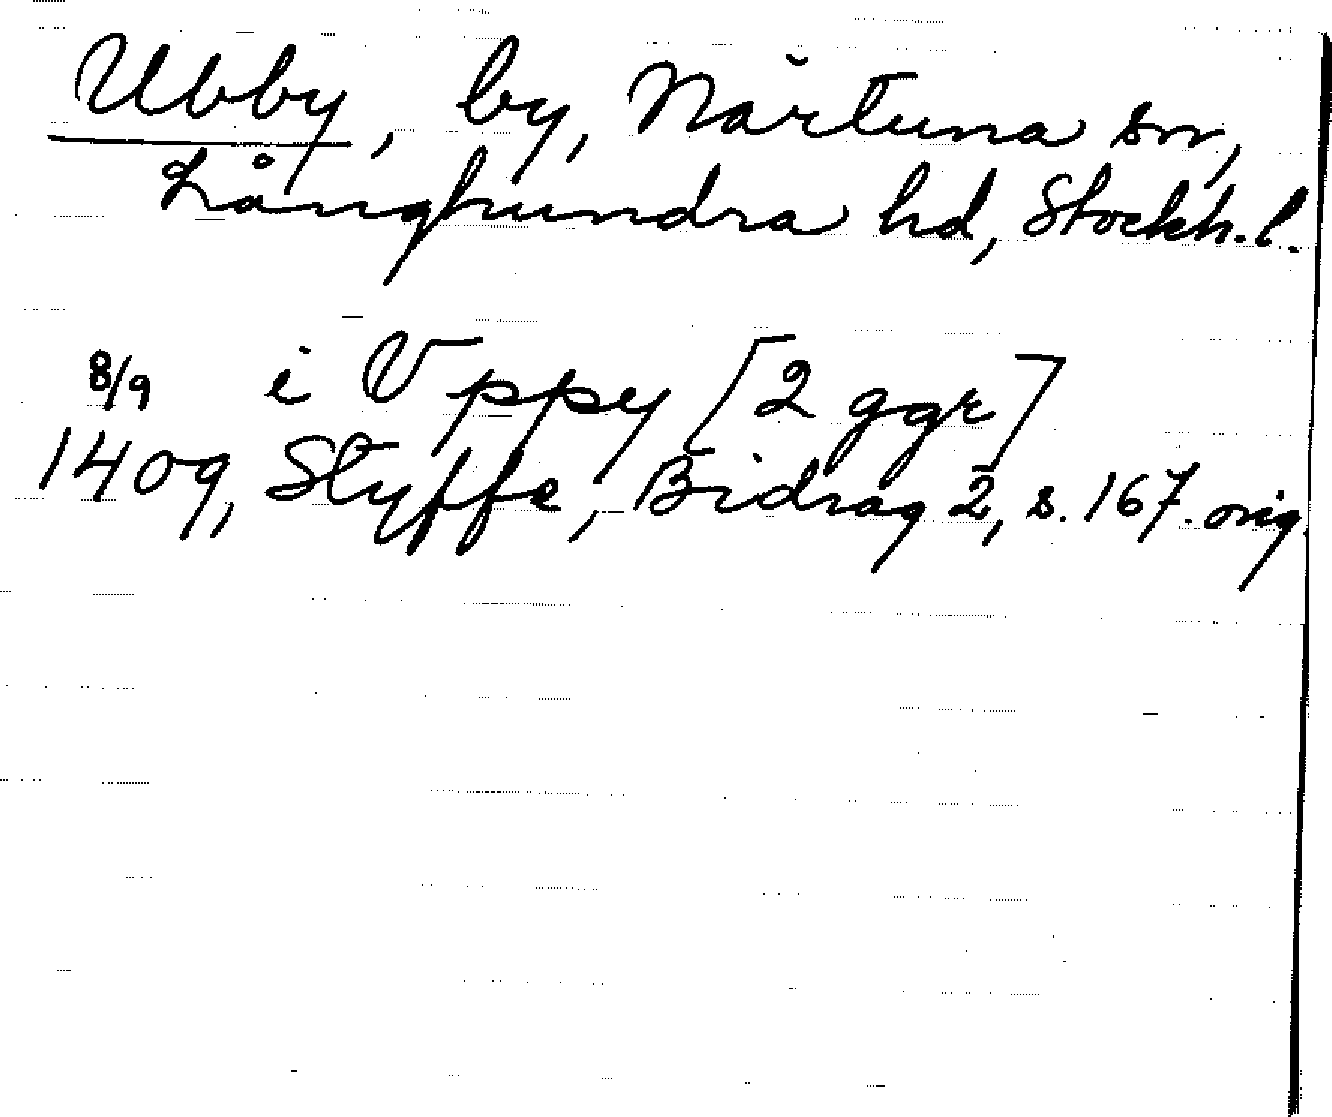 Ubby, by, Närtuna sn,
Långhundra hd, Stockh. l.
8/9 i Vppy [2 ggr]
1409, Styffe, Bidrag 2, s. 167. orig.